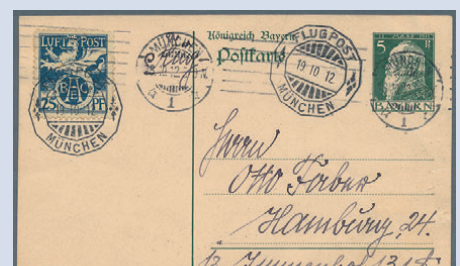 LUFTPOST
BAEC
25 PF
MÜNCHEN
MÜNCHEN
1
Königreich Bayern
Postkarte
FLUGPOST
19 10 12
MÜNCHEN
5
BAYERN
1
Herrn
Otto Faber
Hamburg, 24.
Immenhof 13